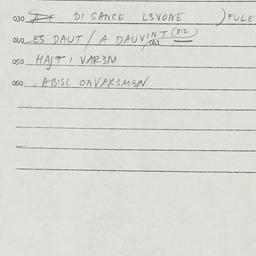 030 DI GANCE L3VONE ) FULE
040 ES DAUT / A DAUVINT (812)
050 HAJT I VAR3N
060 . ABISL ONVAR3M3N